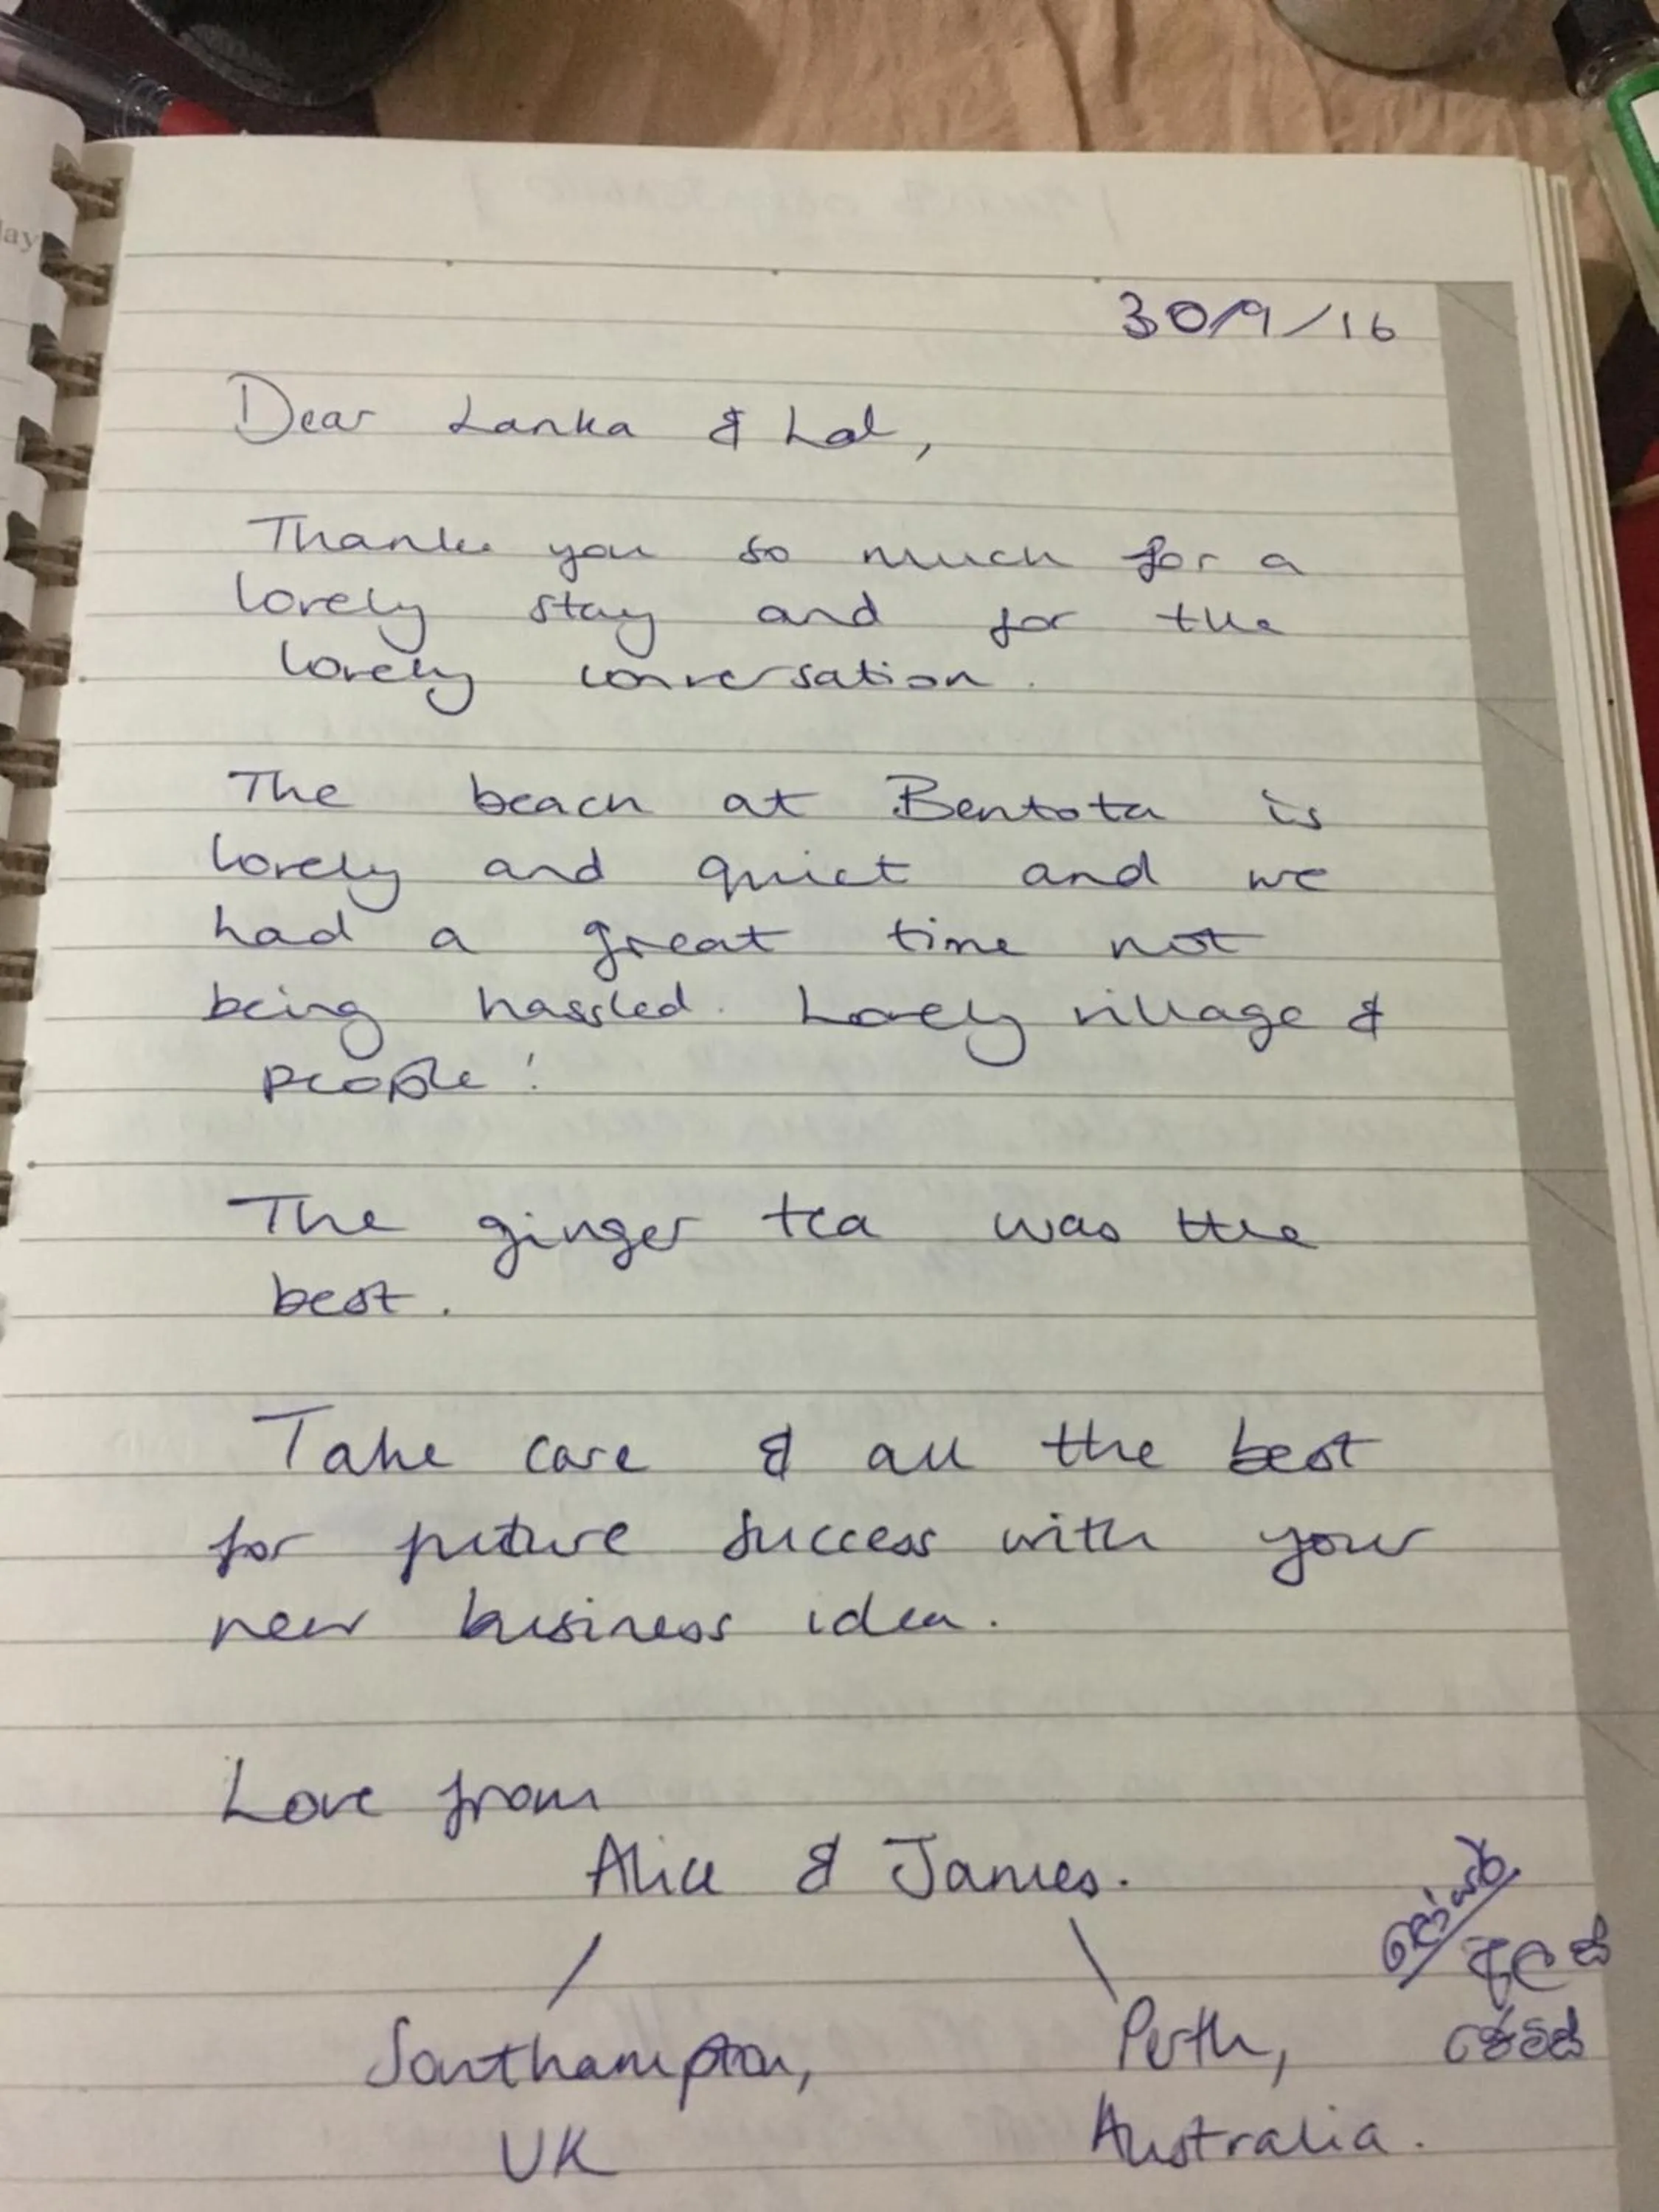 30/9/16
Dear Lanka & Lal,
Thanks you so much for a
lovely stay and for the
lovely conversation.
The beach at Bentota is
lovely and quiet and we
had a great time not
being hassled. Lovely village &
people!
The ginger tea was the
best.
Take care & all the best
for future success with your
new business idea.
Love from
Alice & James.
Southampton,
UK
Perth,
Australia.